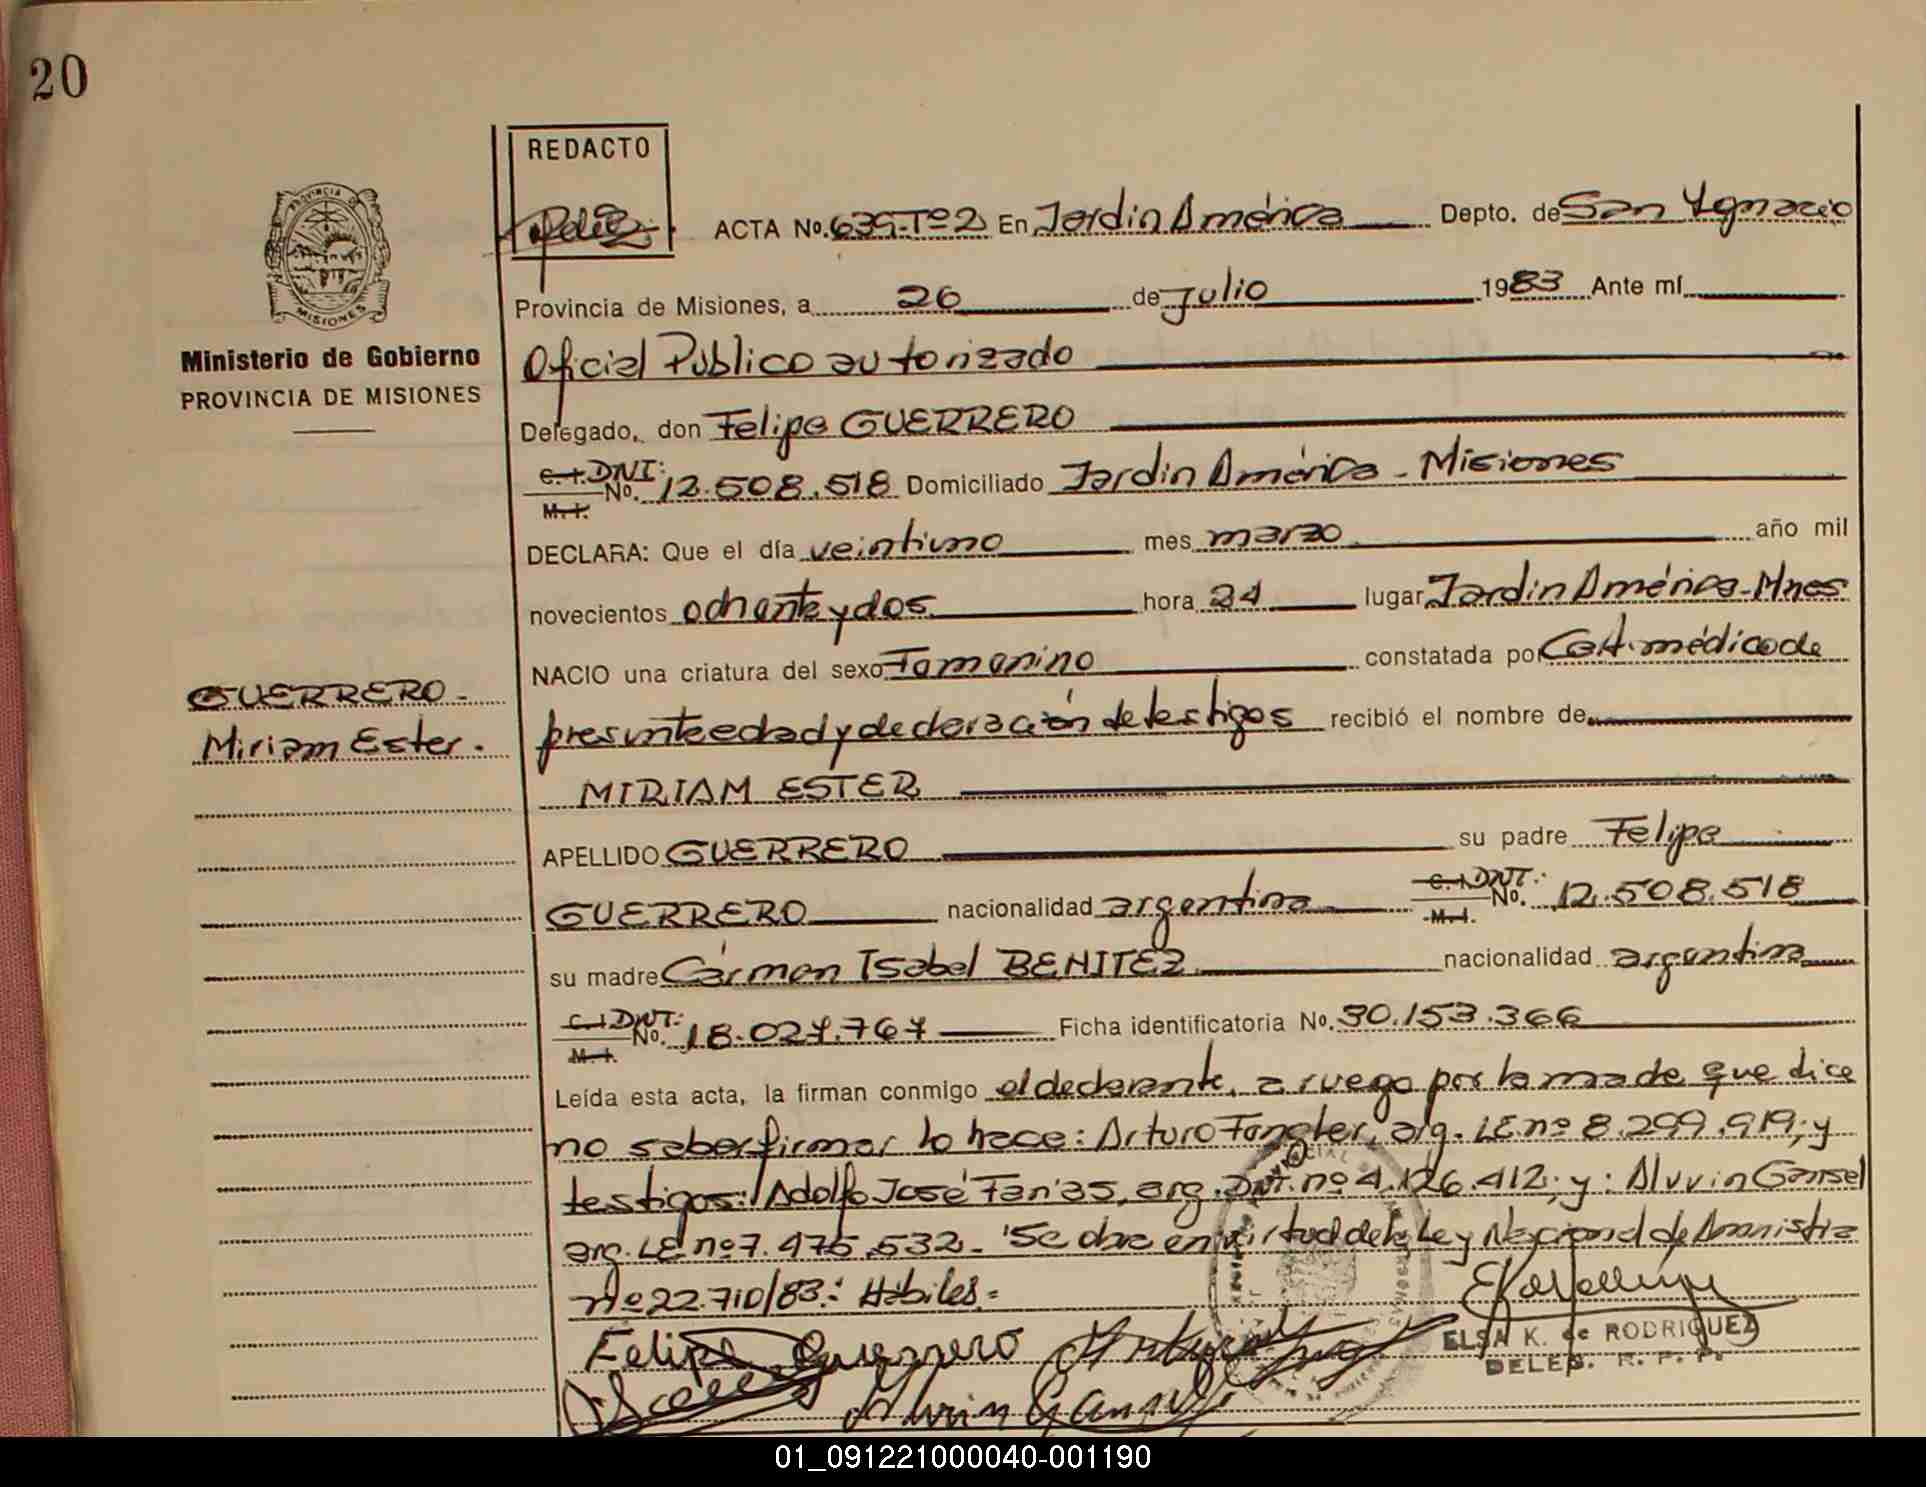 20
REDACTO
PROVINCIA DE
MISIONES
Ministerio de Gobierno
PROVINCIA DE MISIONES
ACTA No. 639-Tº2 En Jardín América Depto. de San Ygnacio
Provincia de Misiones, a 26 de Julio 1983 Ante mí
Oficial Público autorizado
Delegado, don Felipe GUERRERO
C.I. DNI: M.I. No. 12.508.518 Domiciliado Jardín América - Misiones
DECLARA: Que el día veintiuno mes marzo año mil
novecientos ochenta y dos hora 24 lugar Jardín América-Mnes
NACIO una criatura del sexo Femenino constatada por Cert. médico de
GUERRERO-
Miriam Ester.
presunta edad y declaración de testigos recibió el nombre de
MIRIAM ESTER
APELLIDO GUERRERO su padre Felipe
GUERRERO nacionalidad argentina C.I. DNI.: M.I. No. 12.508.518
su madre Cármen Isabel BENITEZ nacionalidad argentina
C.I. DNI.: M.I. No. 18.027.767 Ficha identificatoria No. 30.153.366
Leída esta acta, la firman conmigo el declarante, a ruego por la madre que dice
no saber firmar lo hace: Arturo arg. LE nº 8.299.919; y
testigos: Adolfo José Farías, arg. DNI. nº 4.126.412; y: Alwin Gansel
arg. LE nº 7.475.532- Se labra en virtud de la Ley Nacional de Amnistía
nº 22.710/83: Hábiles.=
Felipe Guerrero
Alwin Gansel
ELSA K. de RODRIGUEZ
DELEG. R. P. P.
01_091221000040-001190